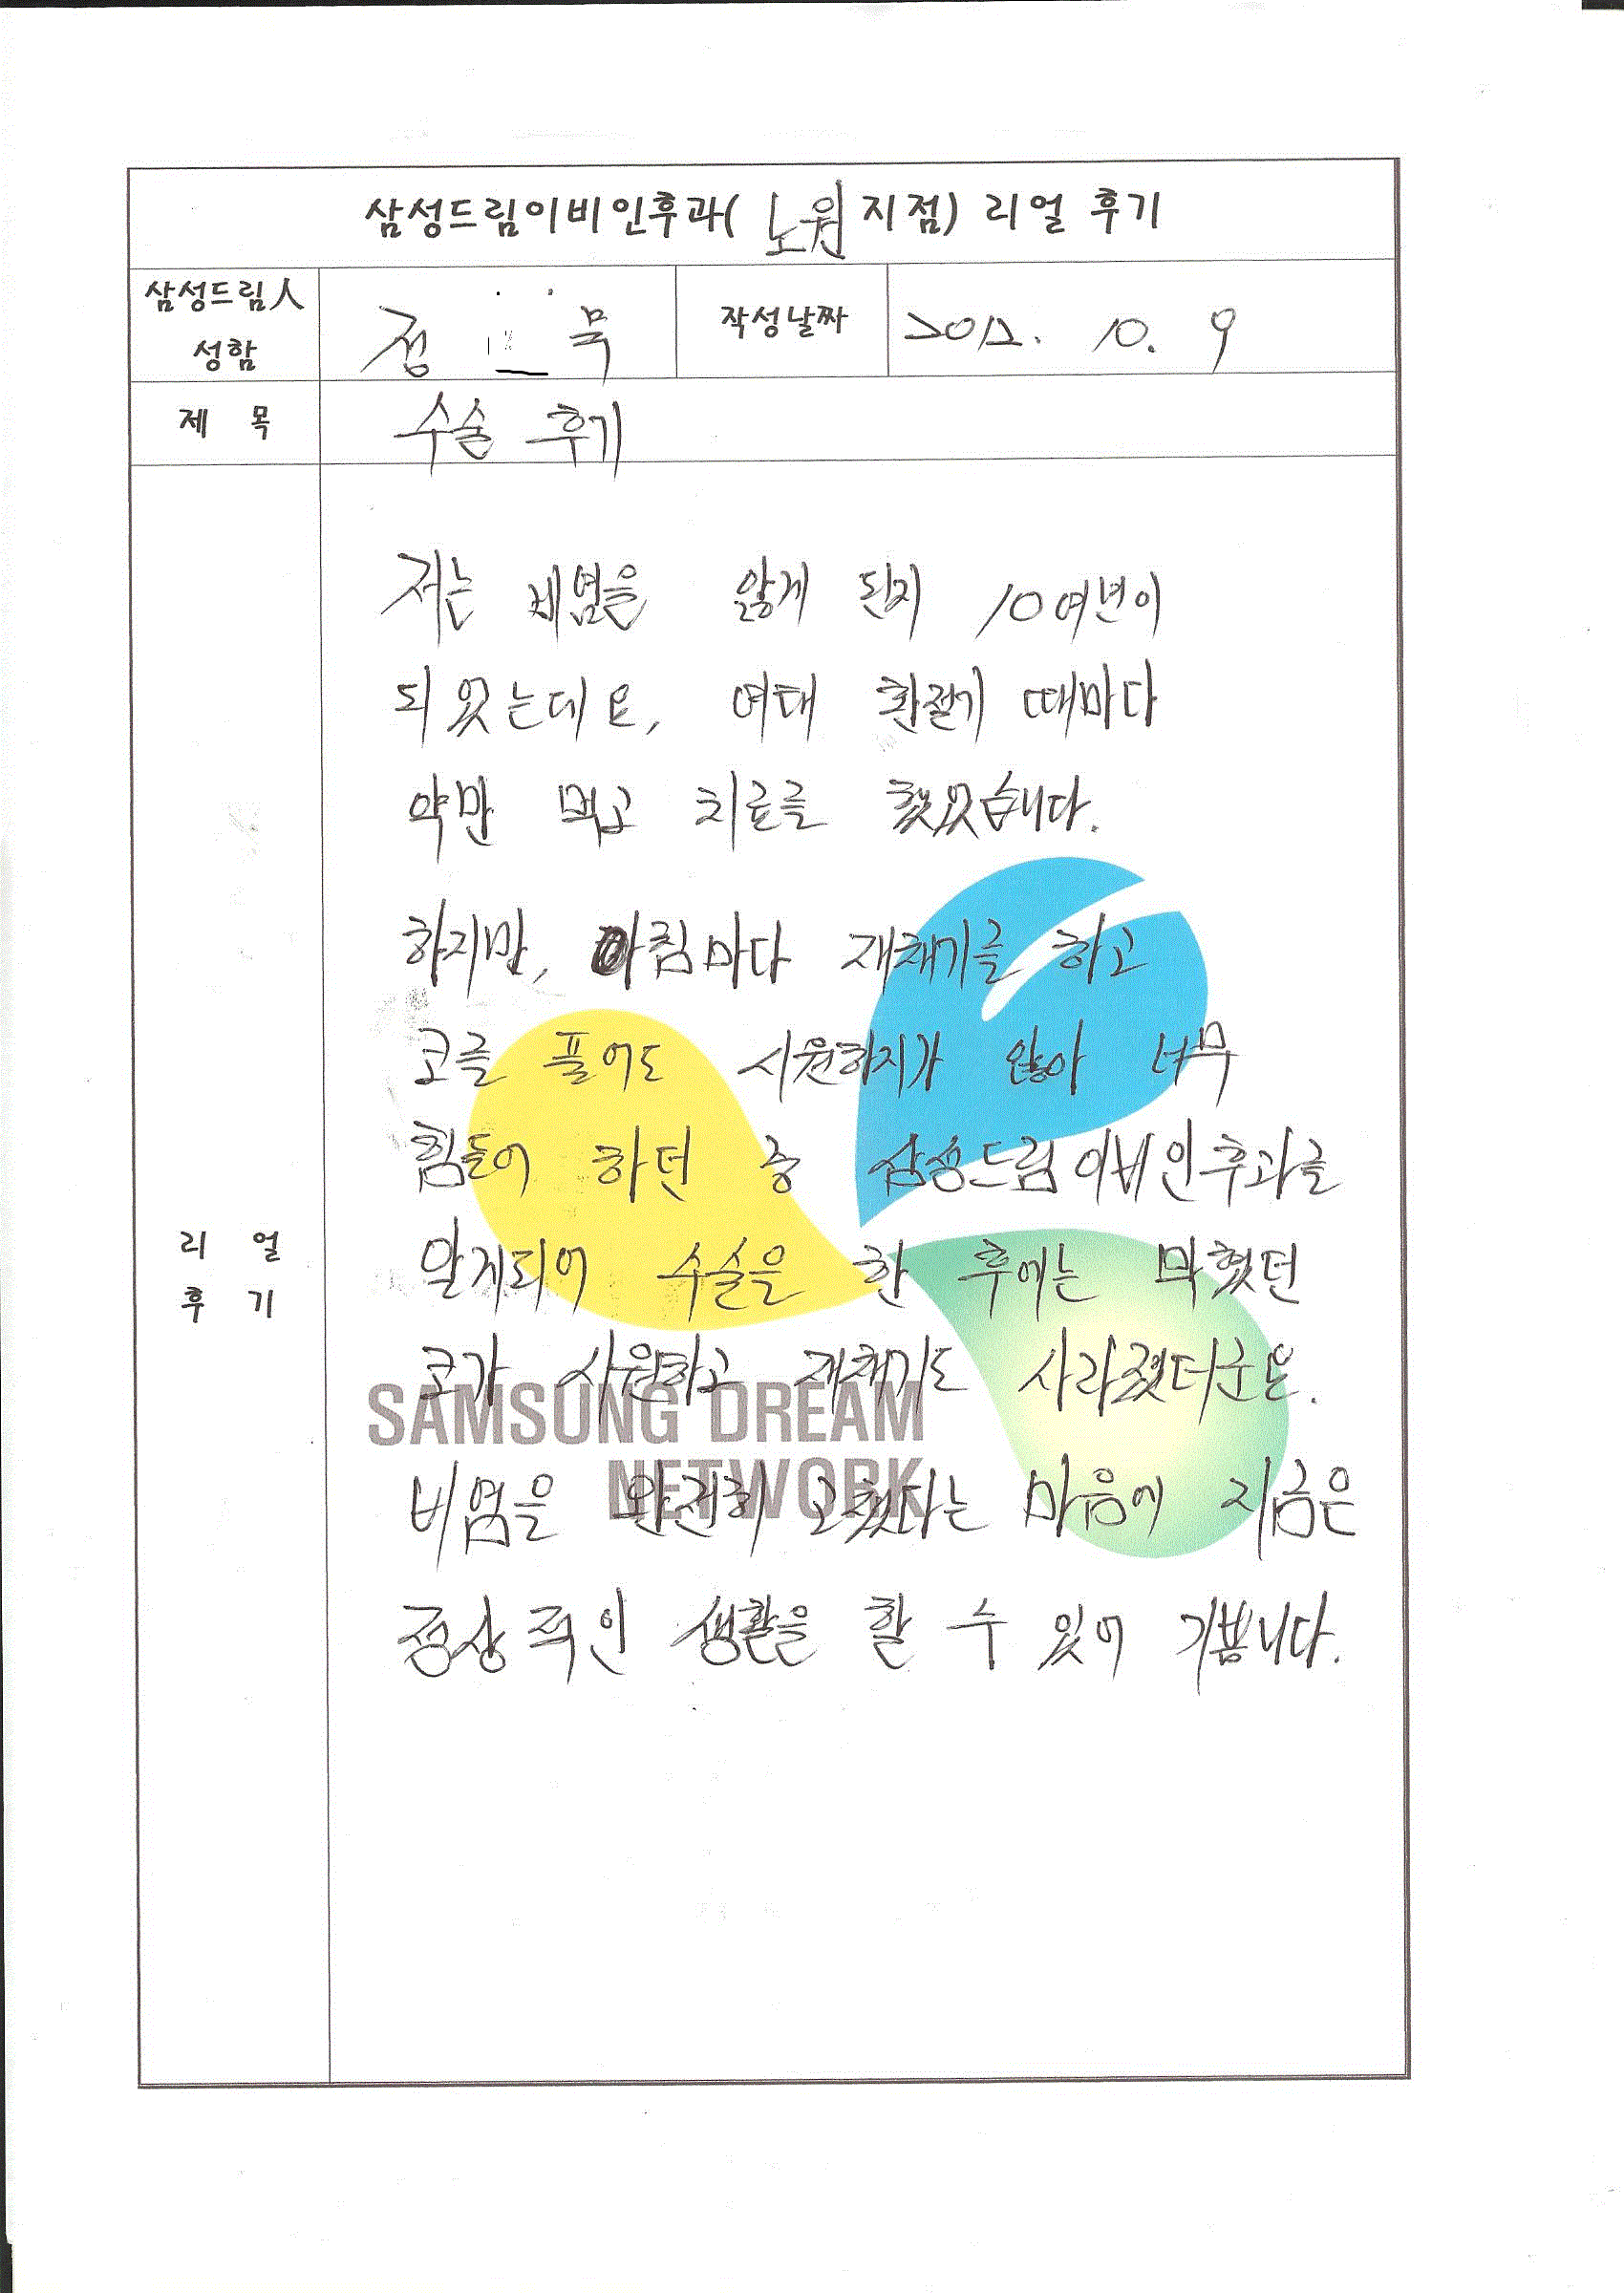 삼성드림이비인후과( 노원 지점) 리얼 후기
삼성드림人
성함
정 묵
작성날짜
2012. 10. 9
제 목
수술 후기
저는 비염을 앓게 된지 10여년이
되었는데요, 여태 환절기 때마다
약만 먹고 치료를 했었습니다.
하지만, 아침마다 재채기를 하고
코를 풀어도 시원하지가 않아 너무
힘들어 하던 중 삼성드림이비인후과를
알게되어 수술을 한 후에는 막혔던
코가 시원하고 재채기도 사라졌더군요.
비염을 완전히 고쳤다는 마음에 지금은
정상적인 생활을 할 수 있어 기쁩니다.
리 얼
후 기
SAMSUNG DREAM
NETWORK